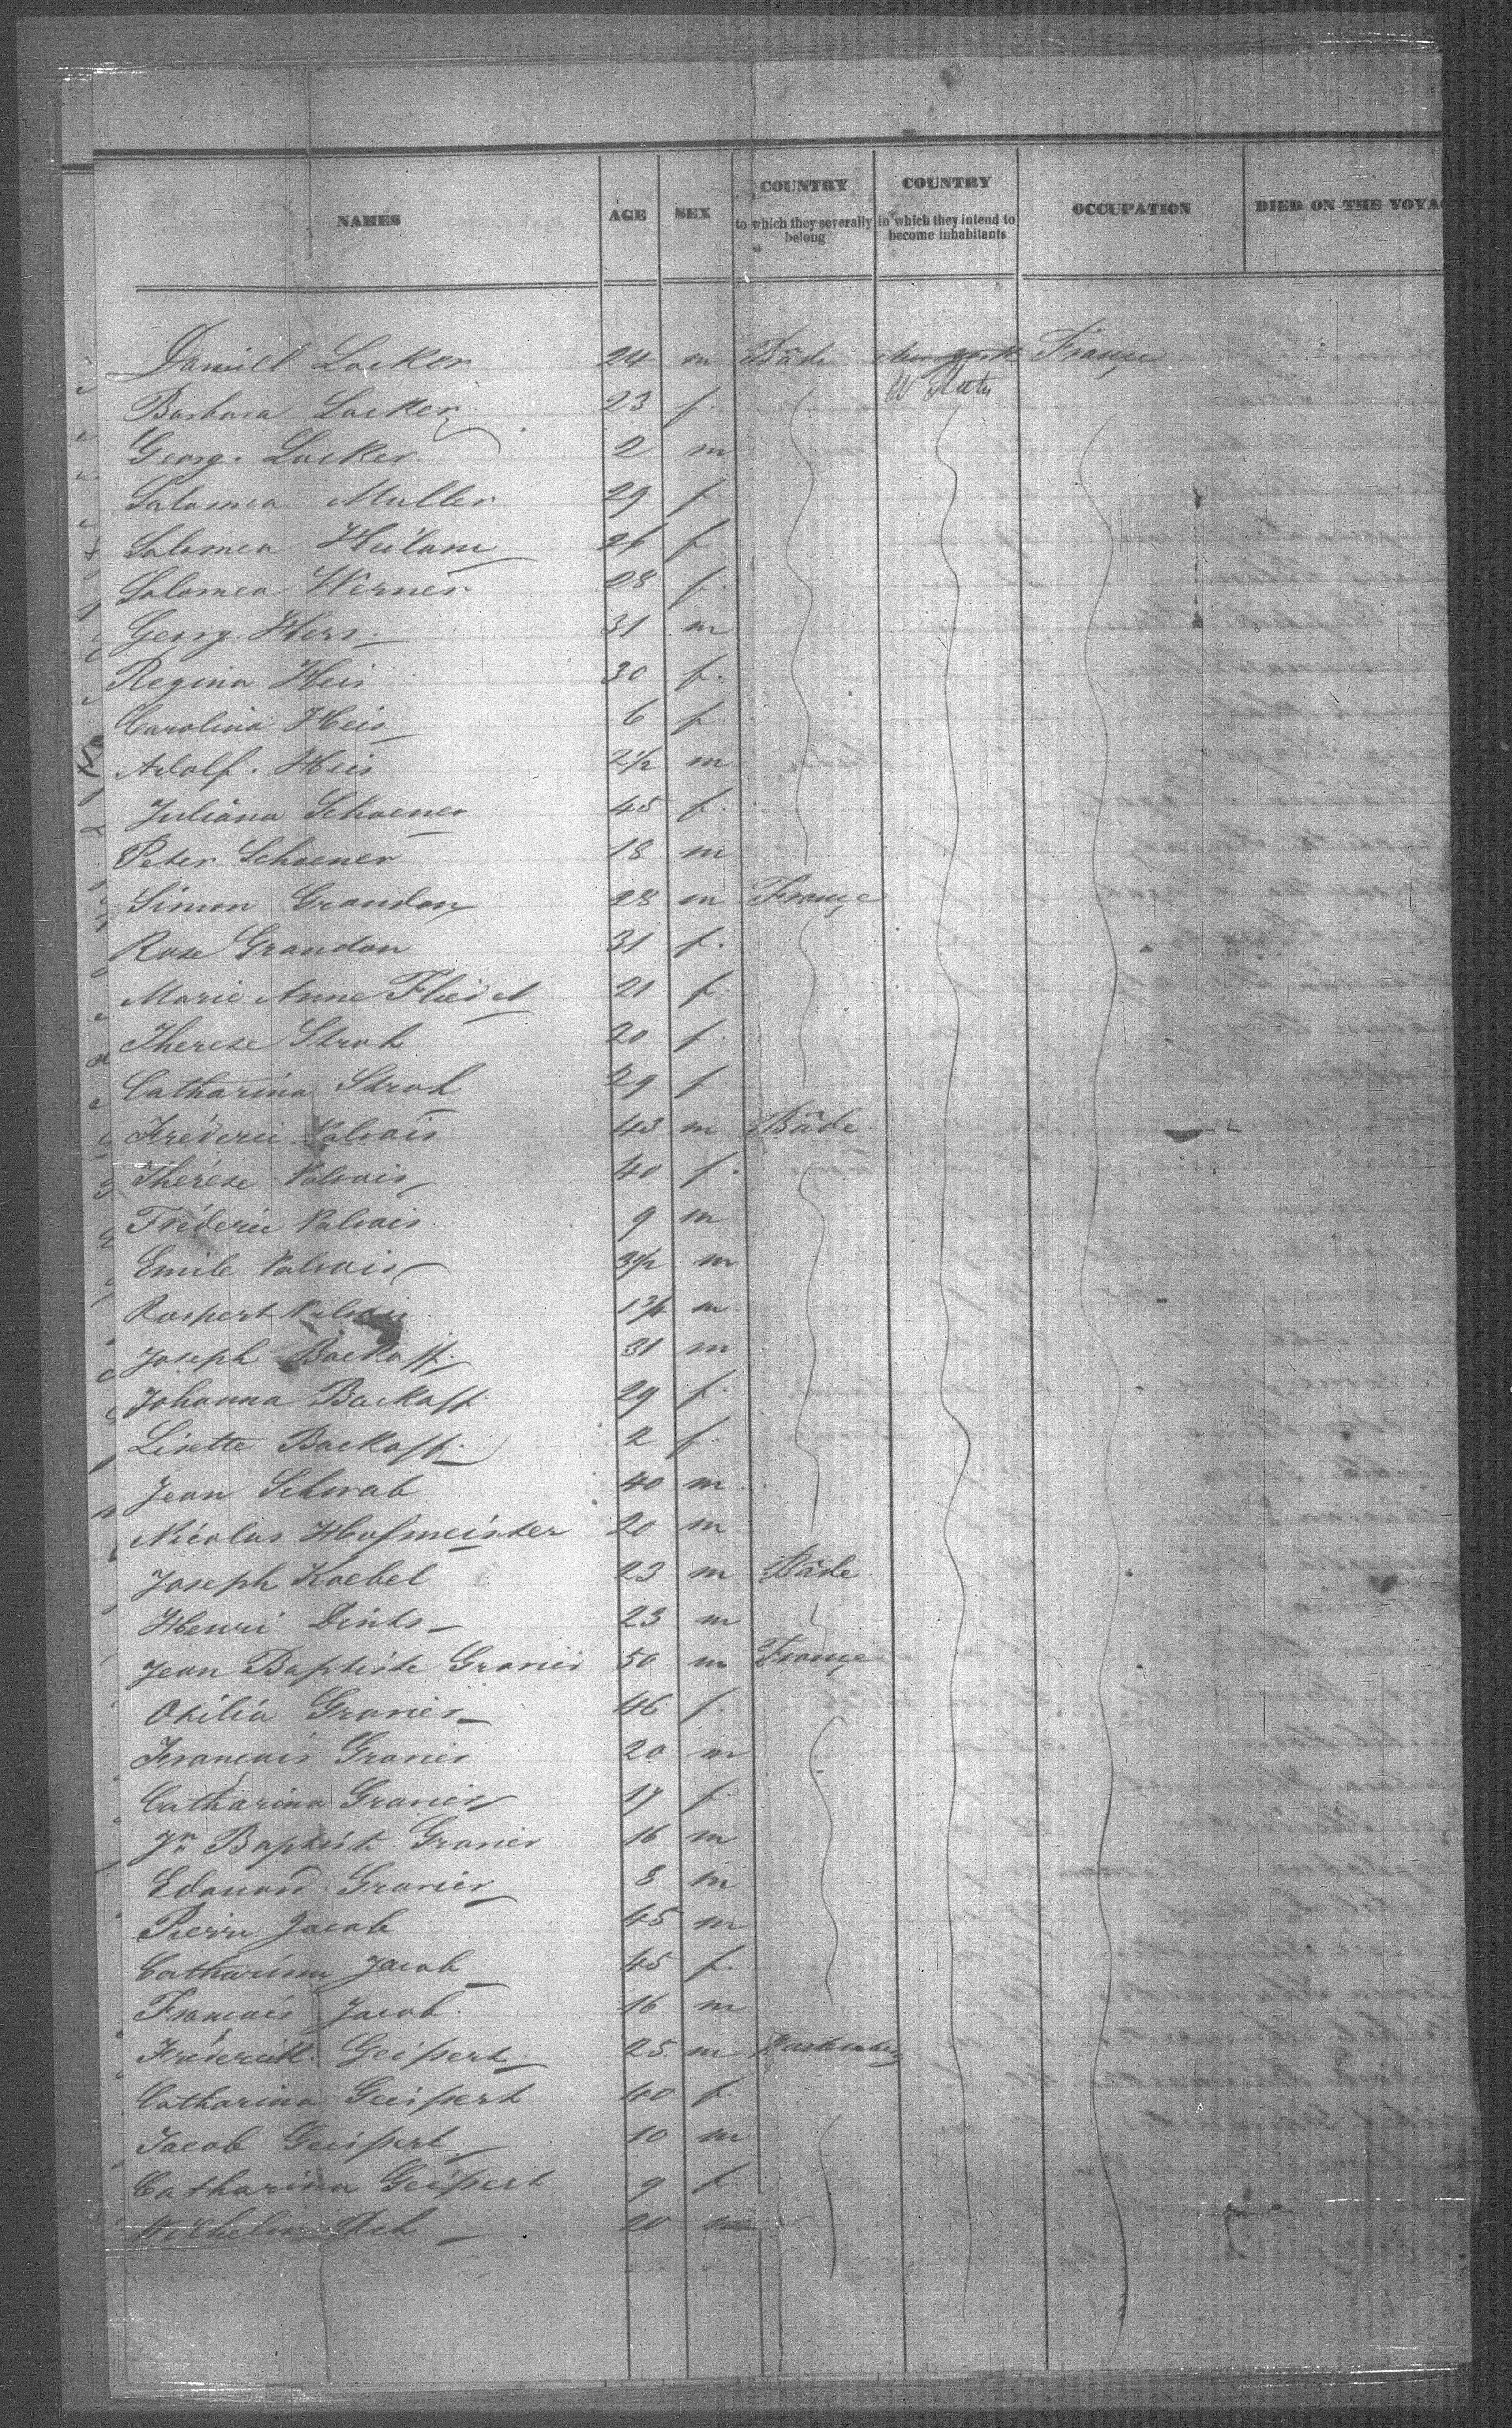 NAMES AGE SEX COUNTRY to which they severally belong COUNTRY in which they intend to become inhabitants OCCUPATION DIED ON THE VOYA
Daniel Locker 24 m Bâde France
Barbara Locker 23 f.
Georg. Locker. 2 m
Salomea Muller 29 f.
Salomea 26 f
Salomea Werner 28 f.
Georg. 31 m
Regina Heis 30 f.
Carolina Heis 6 f
Adolf. Heis 2½ m
Juliana Schoener 45 f.
Peter Schoener 18 m
Simon Grandon 28 m France
Rose Grandon 31 f.
Marie Anne 21 f.
Therese Stroh 20 f.
Catharina Stroh 29 f
Fréderic Valvais 43 m Bâde
Thérèse Valvais 40 f.
Fréderic Valvais 9 m
Emile Valvais 3½ m
Rospert Valvais m
Joseph Backoff. 31 m
Johanna Backoff. 29 f.
Lisette Backoff. 2 f.
Jean Schwab 40 m.
Nicolas Hofmeister 20 m
Joseph Koebel 23 m Bâde
Henri 23 m
Jean Baptiste Granier 50 m France
Otilia Granier 46 f.
Francois Granier 20 m
Catharina Granier 17 f.
Jn Baptiste Granier 16 m
Edouard Granier 8 m
Pierre Jacob 45 m
Catharina Jacob 45 f.
Francois Jacob. 16 m
Geipert 25 m
Catharina Geipert 40 f.
Jacob Geipert 10 m
Catharina Geipert 9 f
Wilhelm 20 m